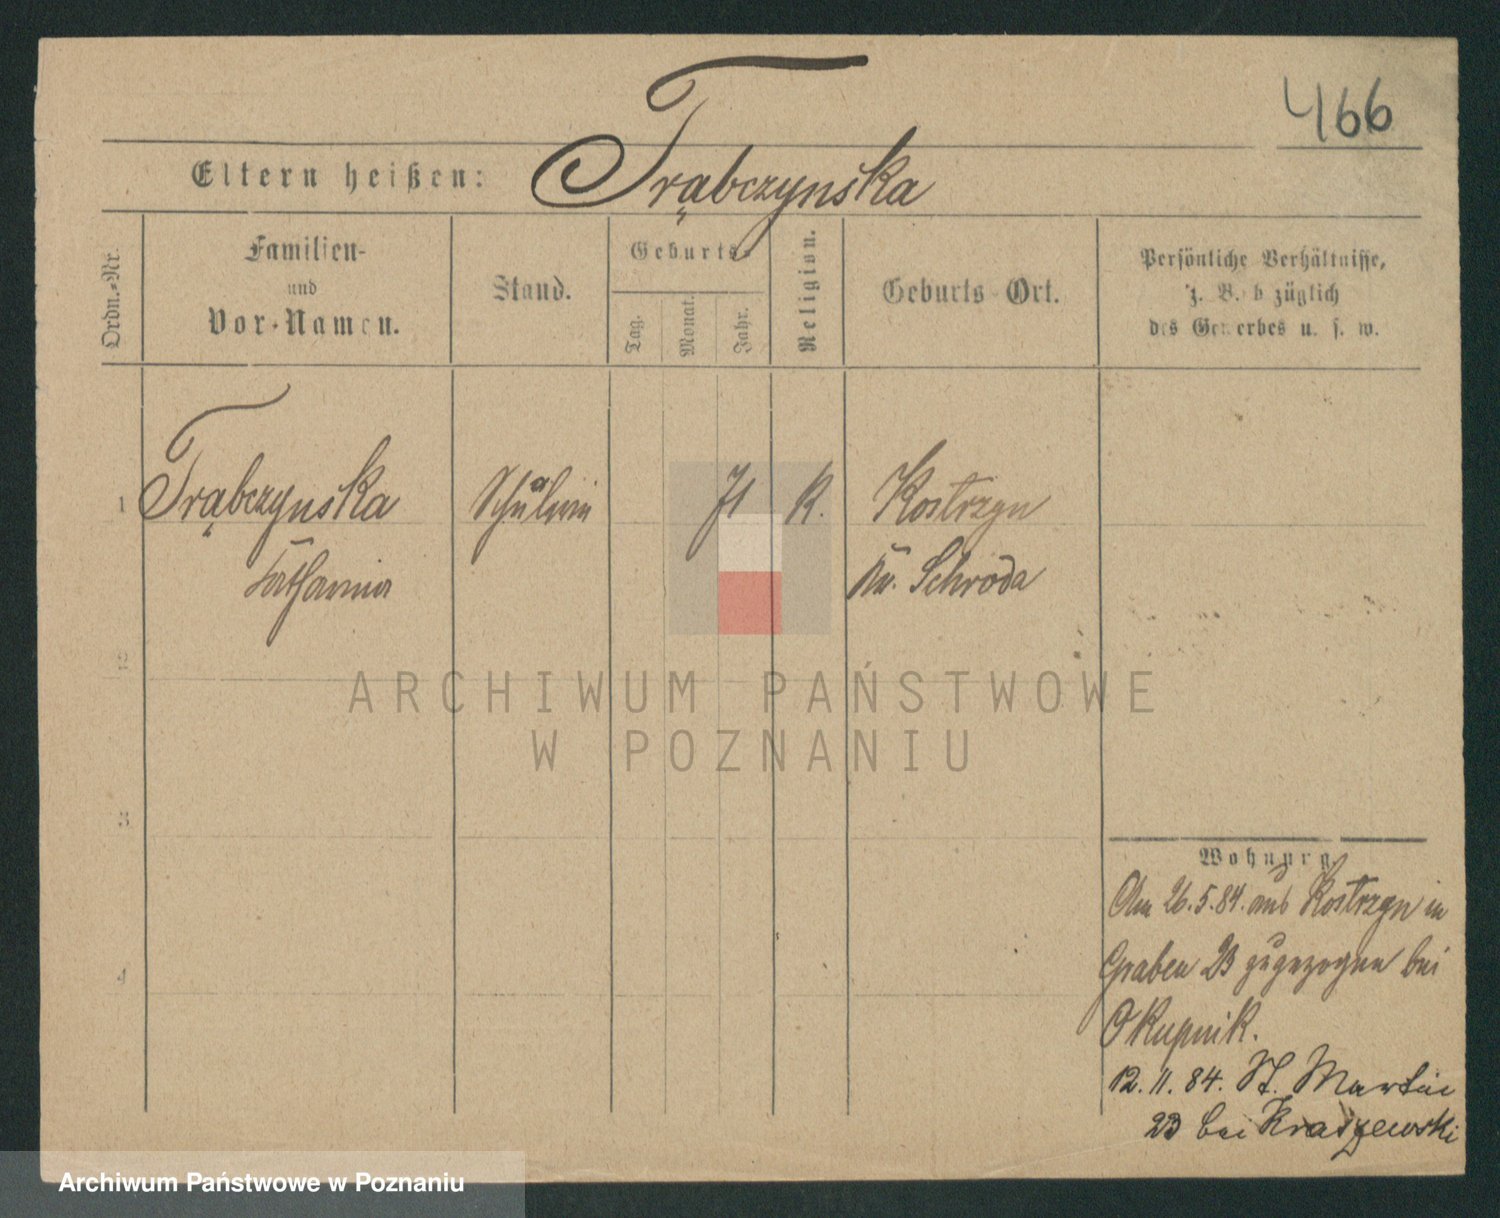 466
Trąbczynska
Eltern heißen:
Ordn.-Nr.
Familien-
und
Vor-Namen.
Stand.
Geburts-
Tag.
Monat.
Jahr.
Religion.
Geburts-Ort.
Persönliche Verhältnisse,
z. B. b züglich
des Gewerbes u. s. w.
1 Trąbczynska Schülerin 71 R. Kostrzyn
Katharina Kr. Schroda
2
ARCHIWUM PAŃSTWOWE
W POZNANIU
3
Wohnung.
Am 26.5.84. aus Kostrzyn in
4
Graben 23 zugezogen bei
Okupnik.
12. 11. 84. St. Martin
23 bei Kraszewski
Archiwum Państwowe w Poznaniu